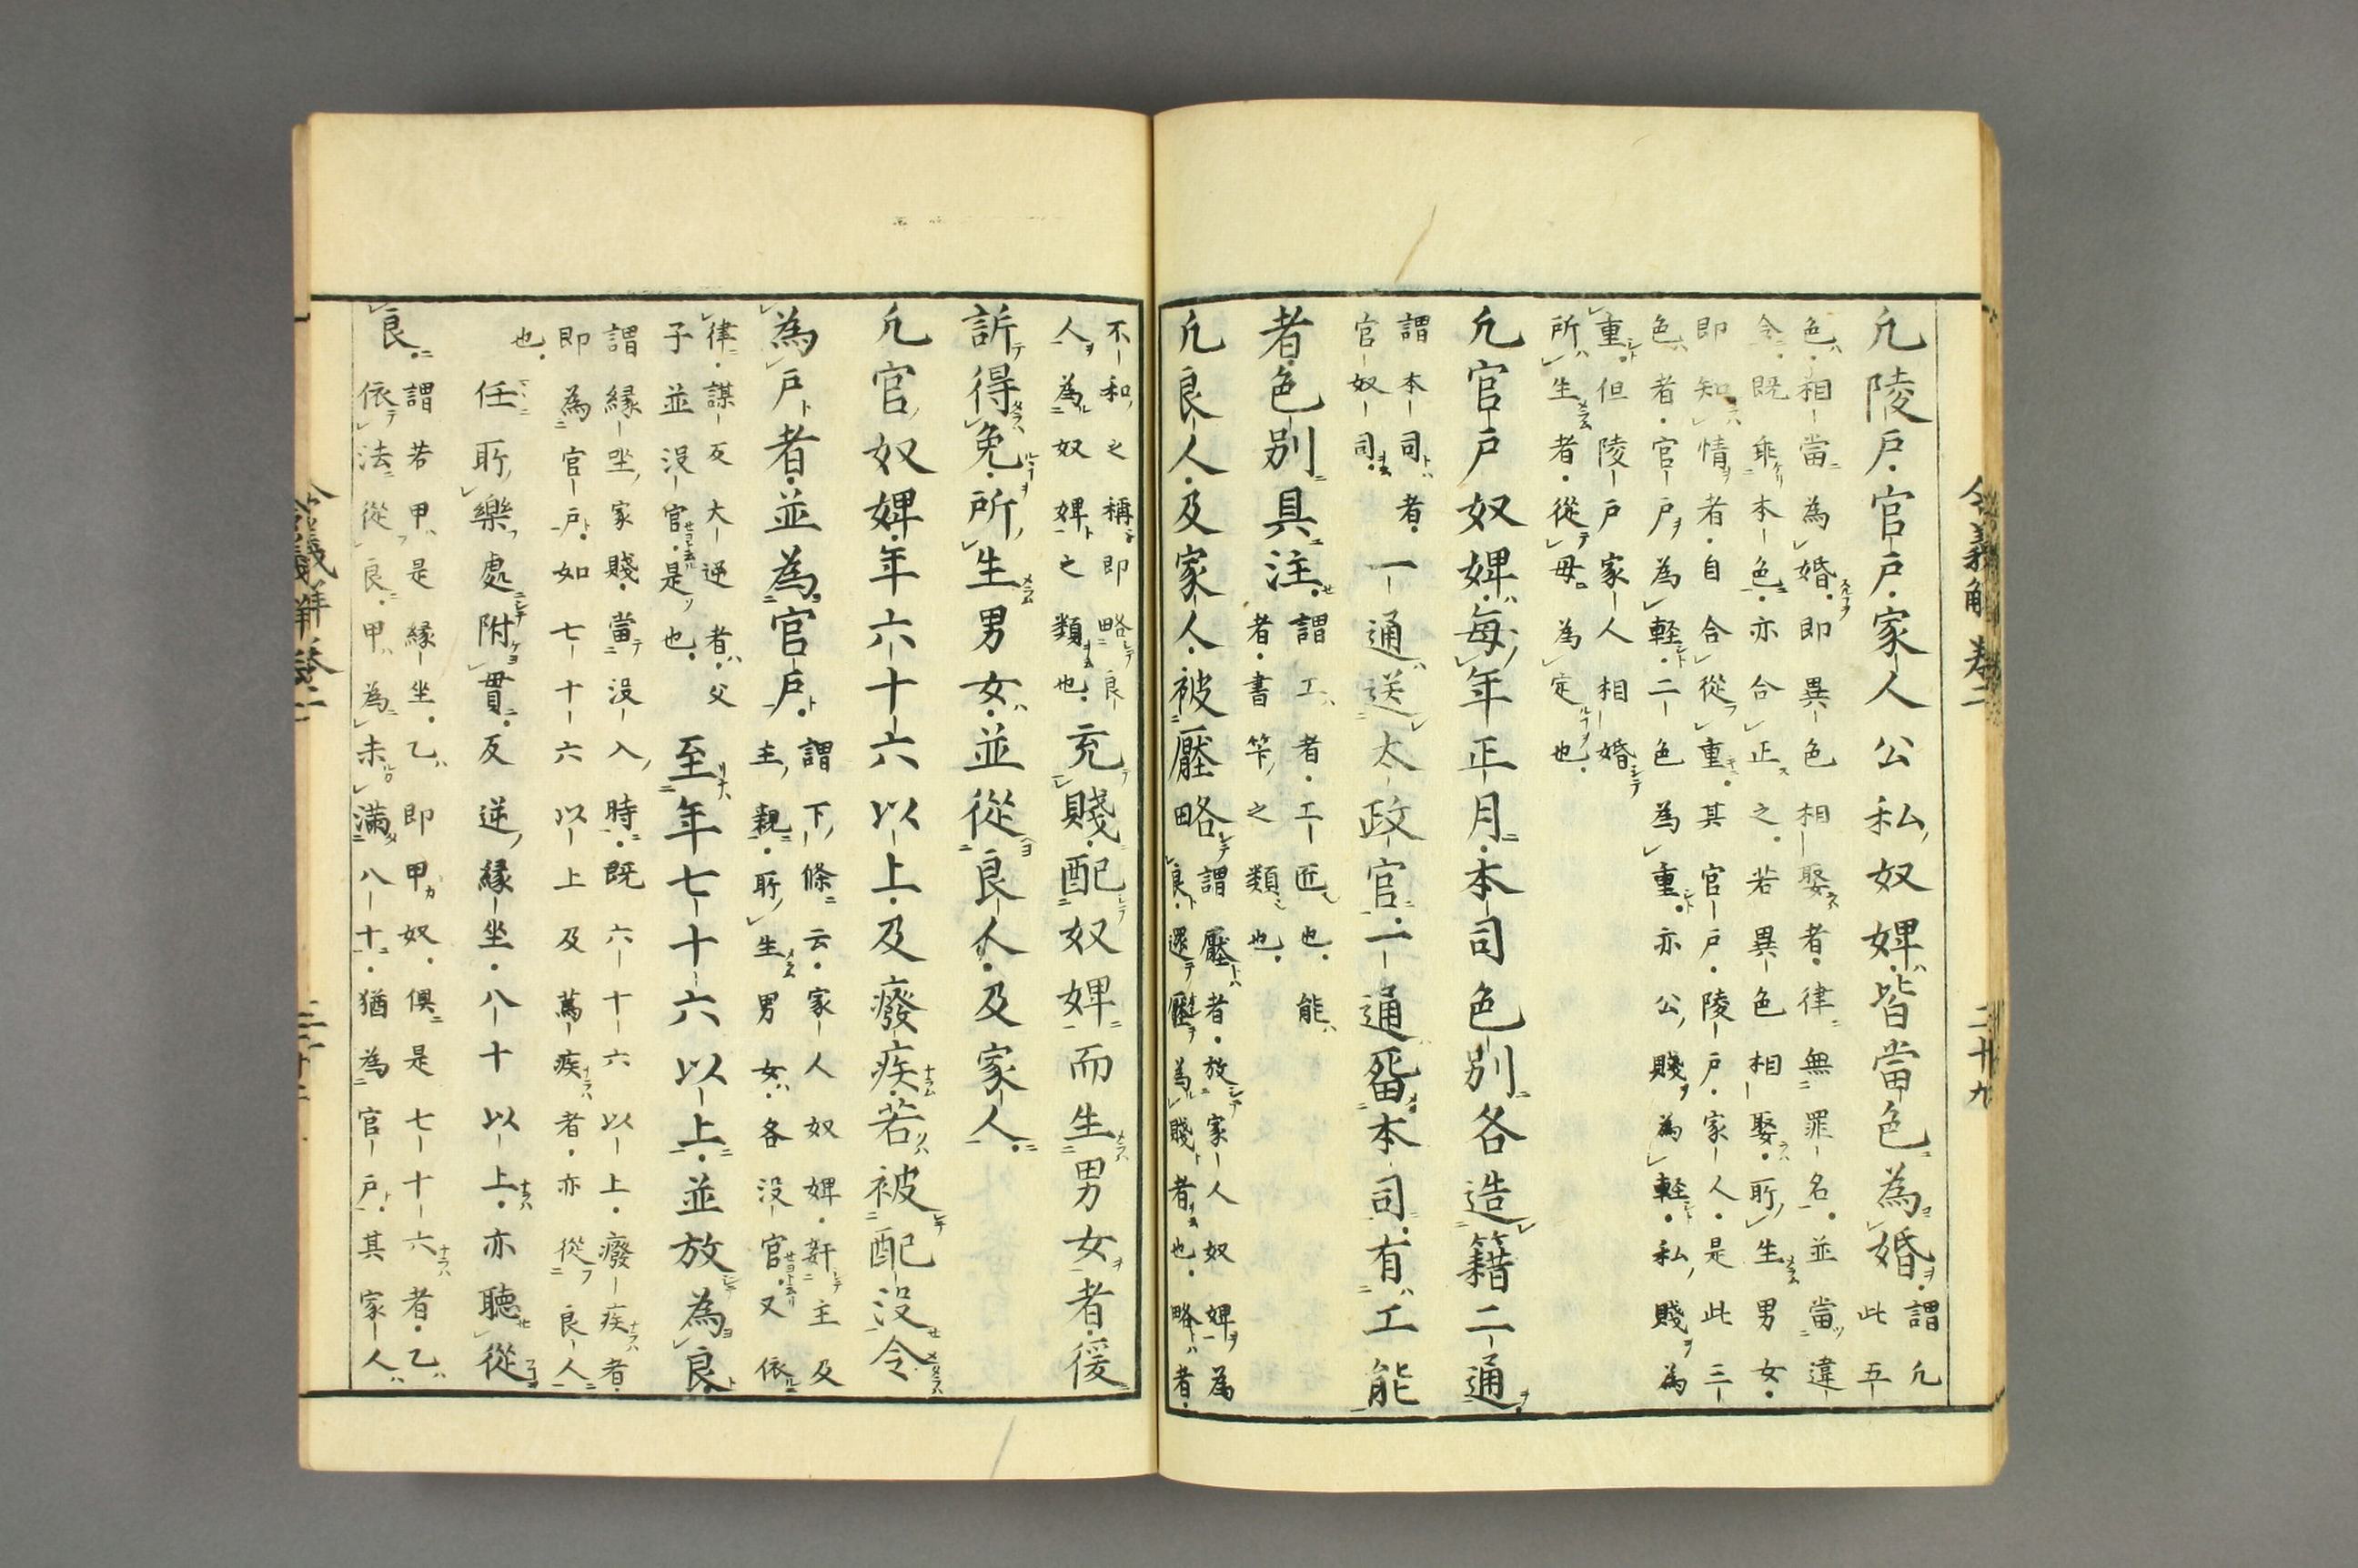 凢陵戸官戸家人公私奴婢皆當色為婚謂凢
此五
色相當為婚即異色相娶者律無罪名並當違
令既乖本色亦合正之若異色相娶所生男女
即知情者自合從重其官戸陵戸家人是此三
色者官戸為軽二色為重亦公賤為軽私賤為
重但陵戸家人相婚
所生者從母為定也
凢官戸奴婢毎年正月本司色別各造籍二通
謂本司者
官奴司
一通送太政官一通畱本司有工能
者色別具注
謂工者工匠也能
者書筭之類也
凢良人及家人被壓略
謂壓者放家人奴婢為
良還壓為賤者也略者
不和之稱即略良
人為奴婢之類也
充賤配奴婢而生男女者後
訴得免所生男女並從良人及家人
凢官奴婢年六十六以上及癈疾若被配没令
為戸者並為官戸
謂下條云家人奴婢姧主及
主親所生男女各没官又依
律謀反大逆者父
子並没官是也
至年七十六以上並放為良
謂縁坐家賤當没入時既六十六以上癈疾者
即為官戸如七十六以上及萬疾者亦從良人
也
任所樂處附貫反逆縁坐八十以上亦聴從
良
謂若甲是縁坐乙即甲奴俱是七十六者乙
依法從良甲為未滿八十猶為官戸其家人
令義解巻二
二十九